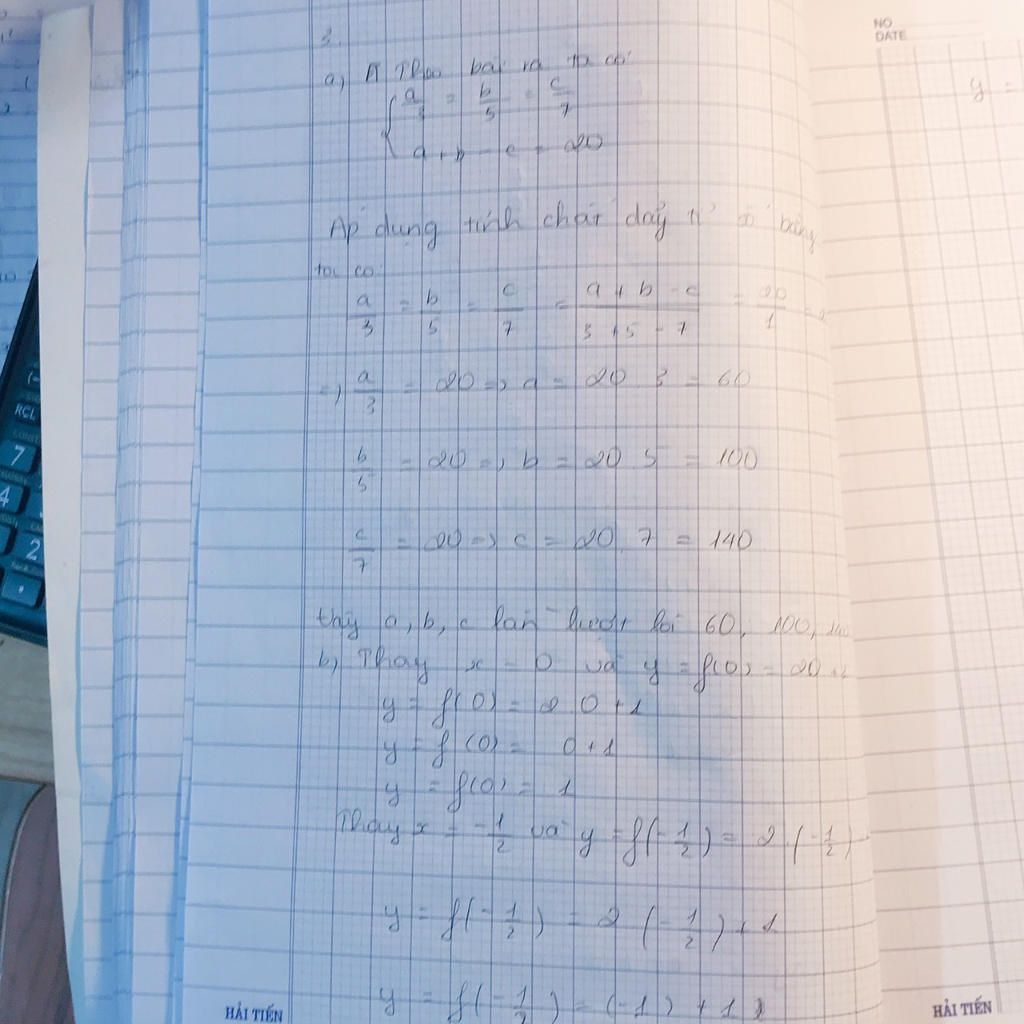 NO
DATE
y =
3.
a, Theo bài ra ta có
a/3 = b/5 = c/7
a + b - c = 20
Áp dụng tính chất dãy tỉ số bằng
ta có
a/3 = b/5 = c/7 = a + b - c / 3 + 5 - 7 = 20/1 =
=, a/3 = 20 =, a = 20 3 = 60
b/5 = 20 =, b = 20 5 = 100
c/7 = 20 =, c = 20. 7 = 140
a, b, c lần lượt 60, 100, 140
b, Thay x = 0 và y = f(0) = 20 +
y = f(0) = 2 0 + 1
y = f(0) = 0 + 1
y = f(0) = 1
Thay x = -1/2 và y = f(-1/2) = 2.(-1/2)
y = f(-1/2) = 2 (-1/2) + 1
y = f(-1/2) = (-1) + 1
RCL
7
4
2
HẢI TIẾN
HẢI TIẾN